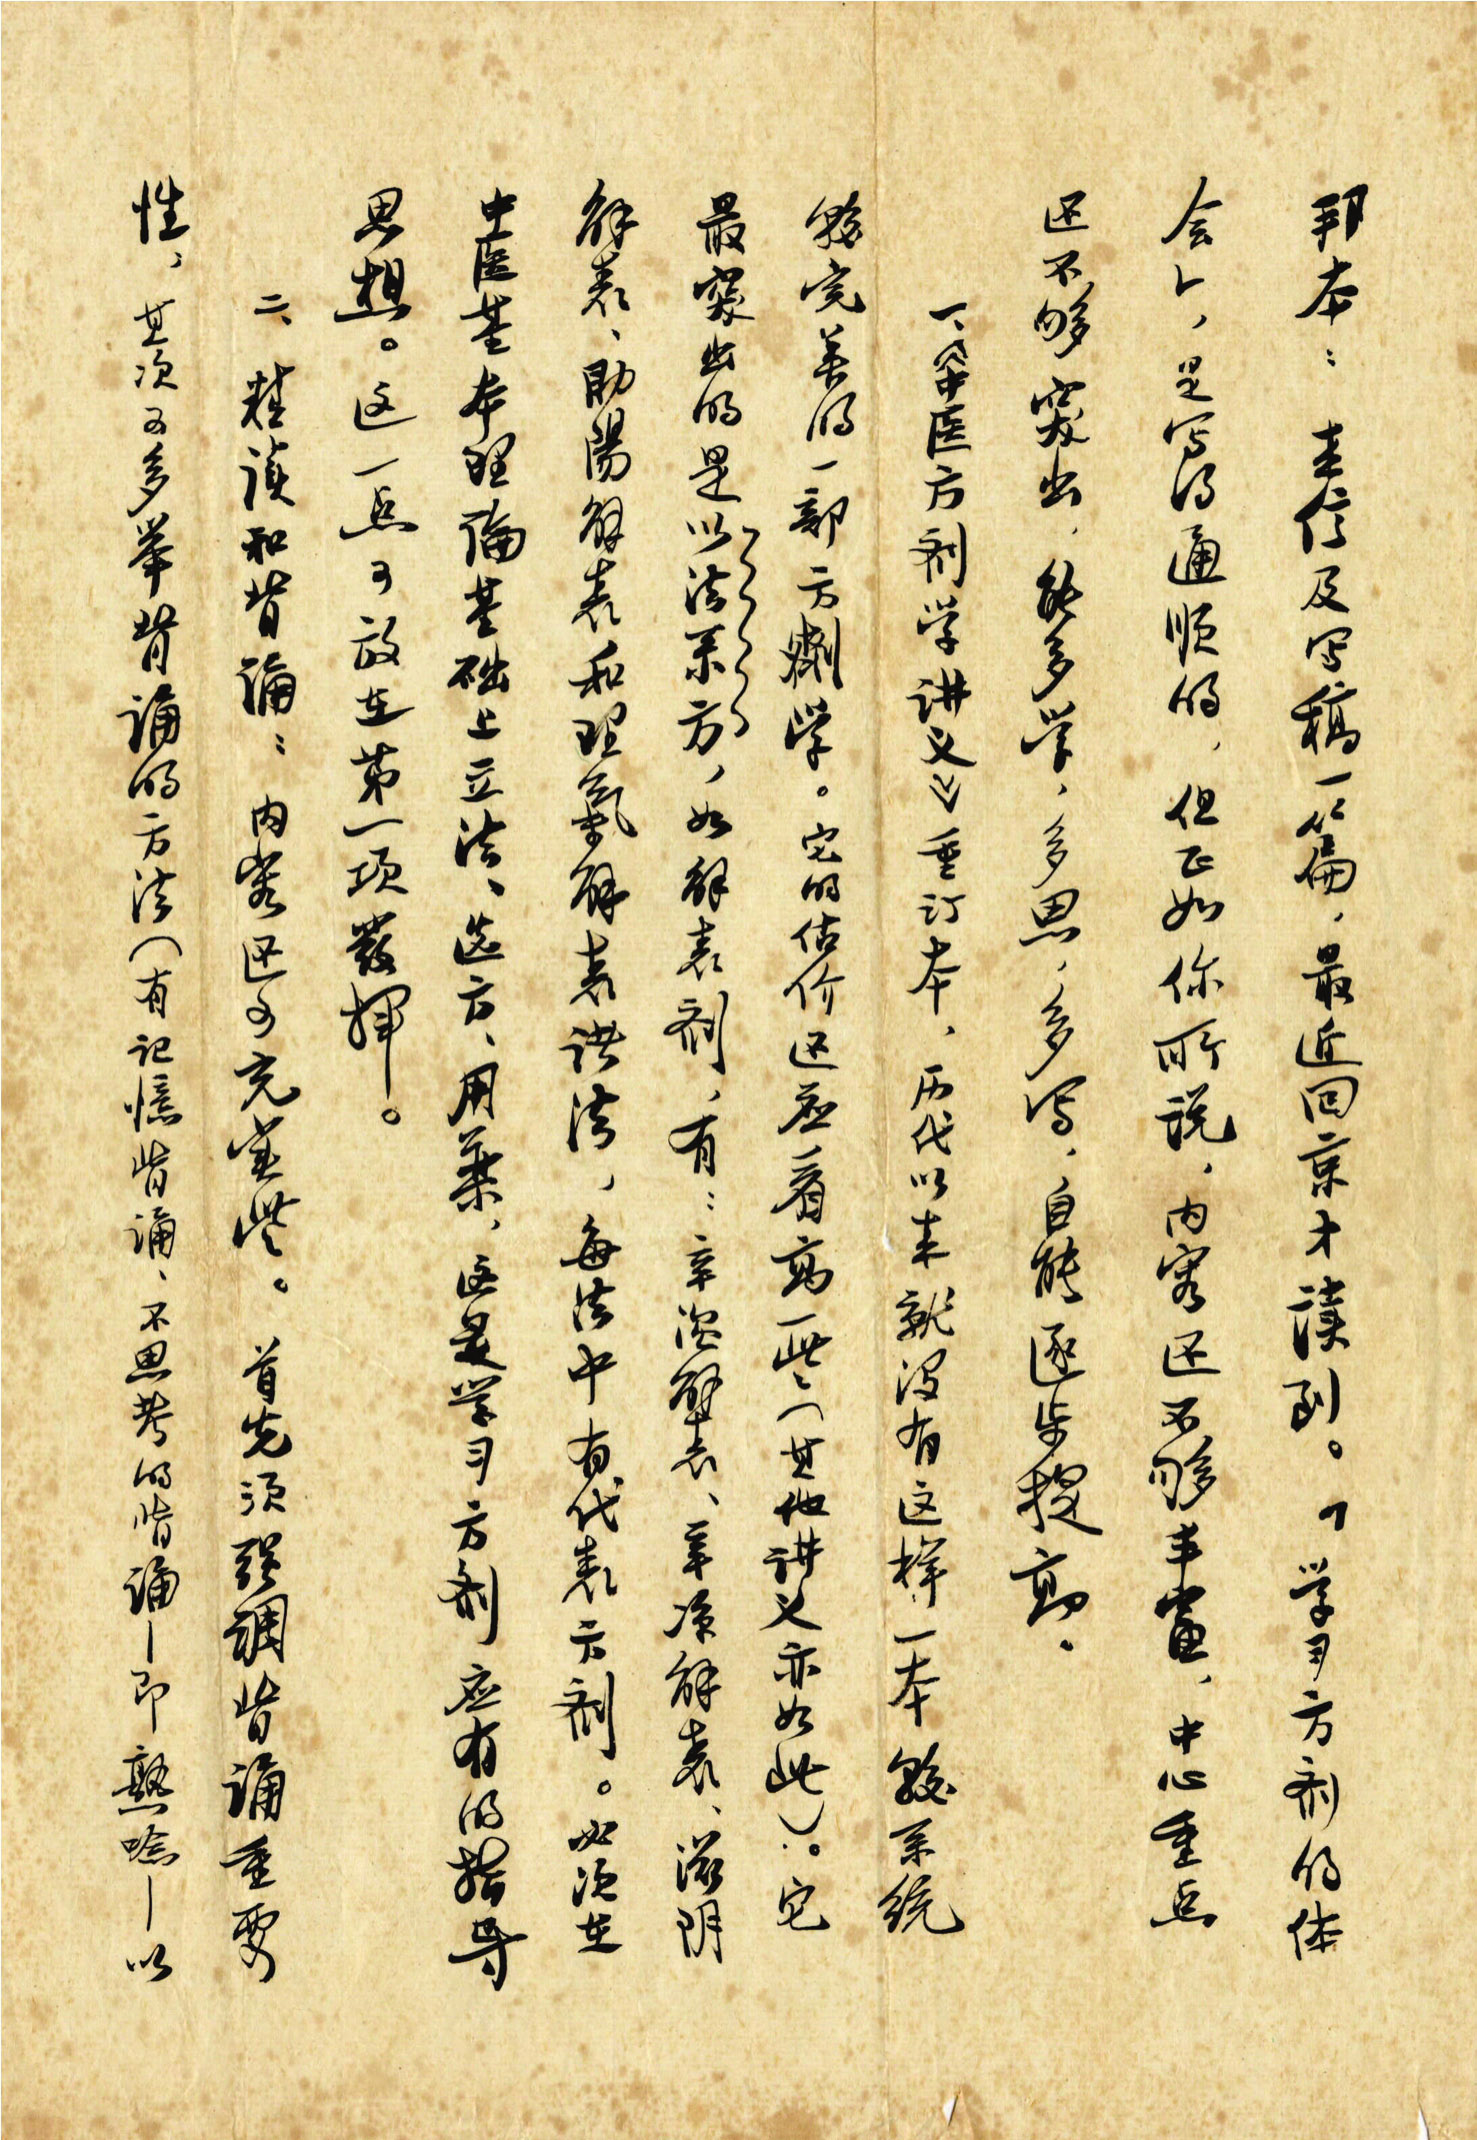 邦本：来信及写稿一篇，最近回京才读到。「学习方剂的体
会」，是写得通顺的，但正如你所说，内容还不够丰富，中心重点
还不够突出，能多学，多思，多写，自能逐步提高。
一、《中医方剂学讲义》重订本，历代以来就没有这样一本较系统
较完美的一部方剂学。它的估价还应看高一些（其他讲义亦如此）。它
最突出的是以法系方，如解表剂，有：辛温解表、辛凉解表、滋阴
解表、助陽解表和理氣解表诸法，每法中有代表方剂。必须在
中医基本理論基础上立法、选方、用薬，这是学习方剂应有的指导
思想。这一点可放在第一项發揮。
二、精读和背誦：内容还可充实些。首先须强調背誦重要
性，其次可多举背誦的方法（有记憶背诵、不思考的背誦—即熟唸—以